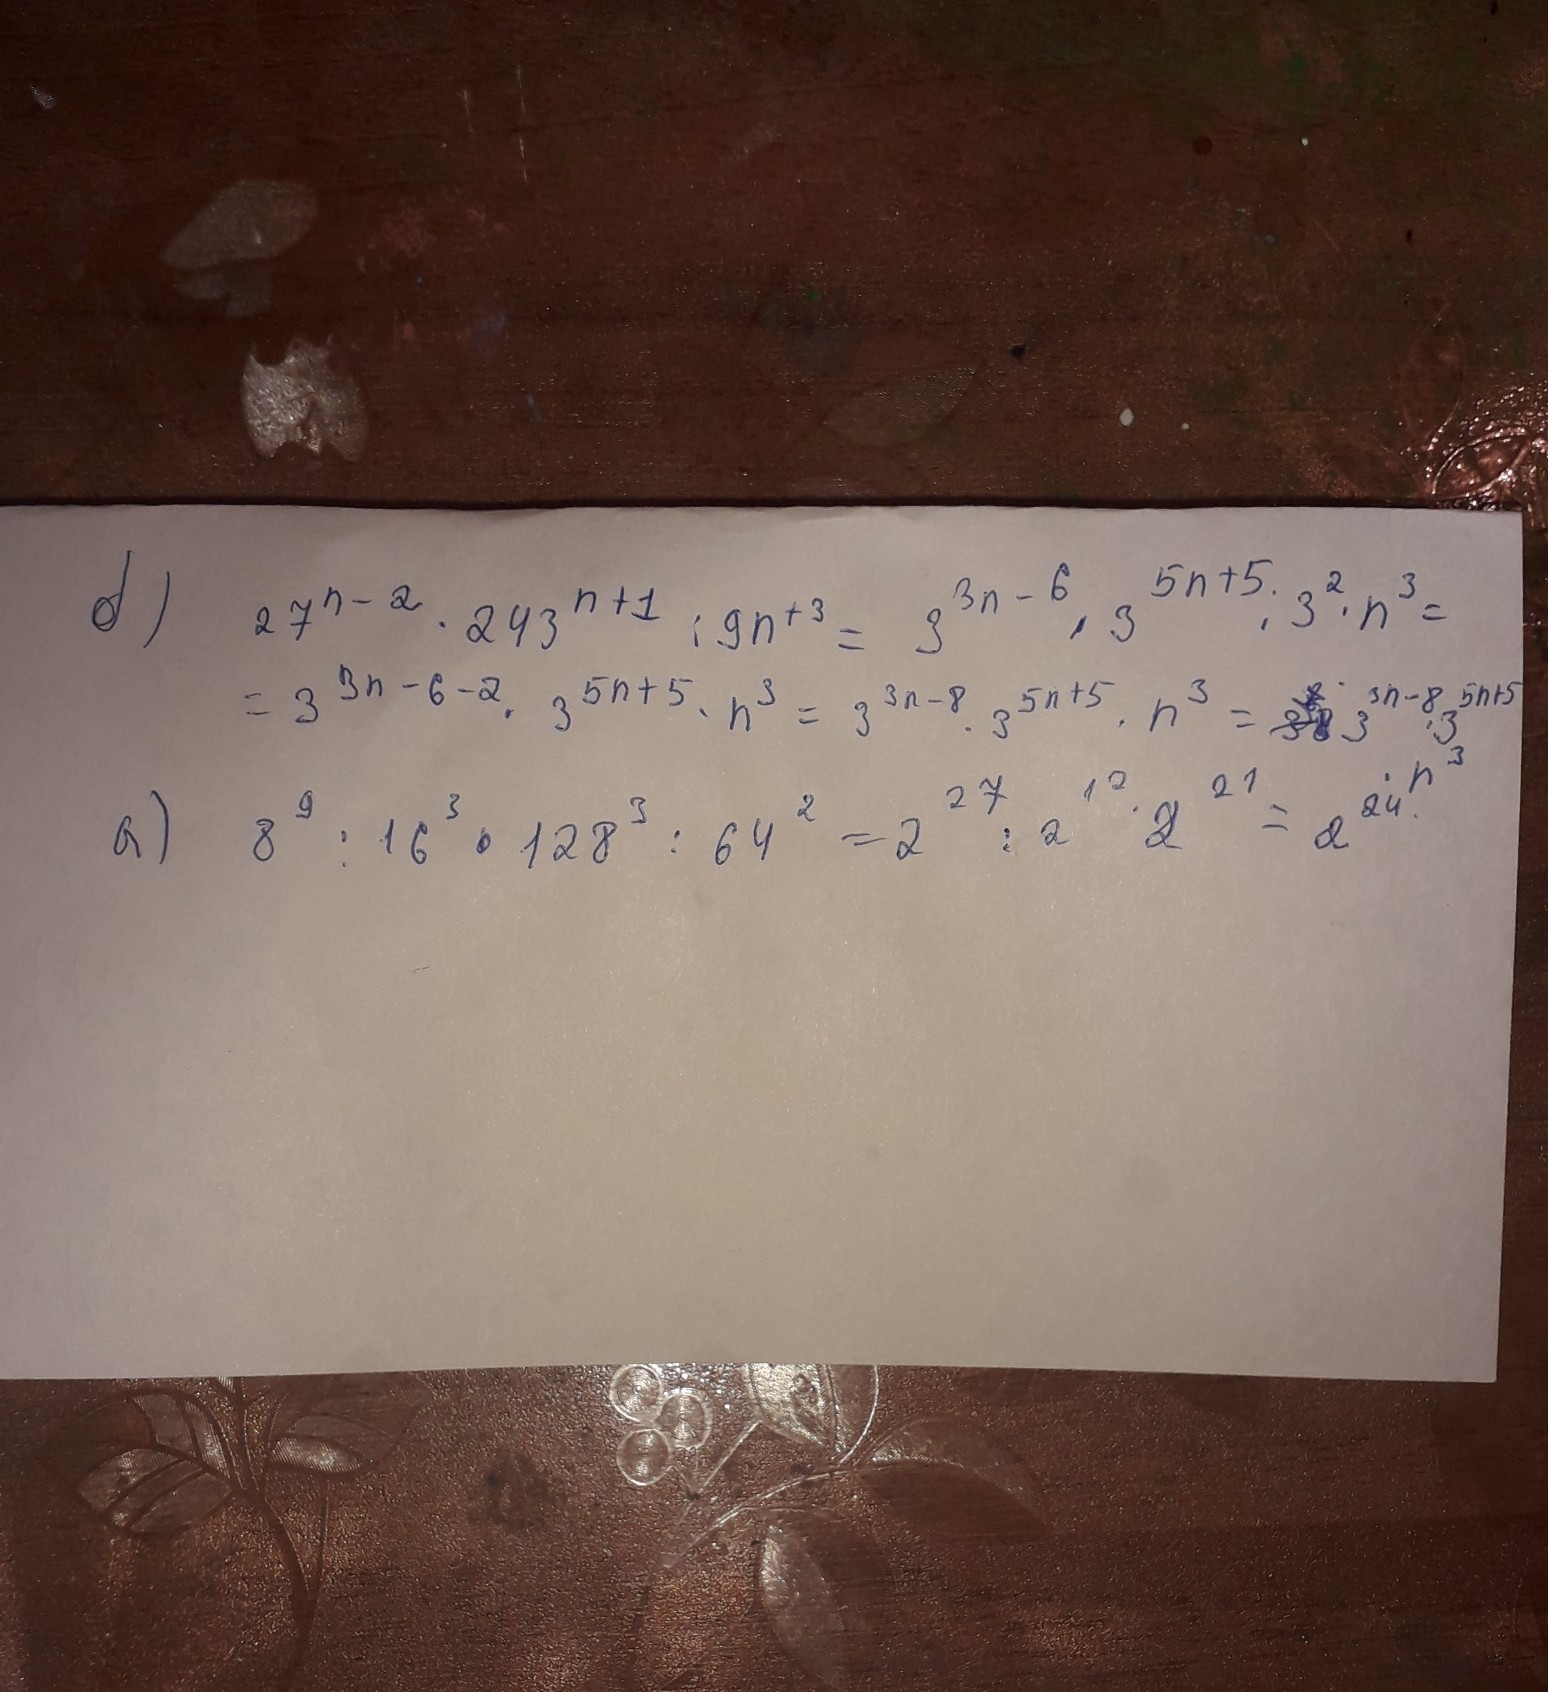 d) 27^{n-2} · 243^{n+1} : 9n^{+3} = 3^{3n-6} · 3^{5n+5} : 3^2 · n^3 =
= 3^{3n-6-2} · 3^{5n+5} · n^3 = 3^{3n-8} · 3^{5n+5} · n^3 = 3^{3n-8} · 3^{5n+5} · n^3
a) 8^9 : 16^3 · 128^3 : 64^2 = 2^{27} : 2^{12} · 2^{21} = 2^{24}.